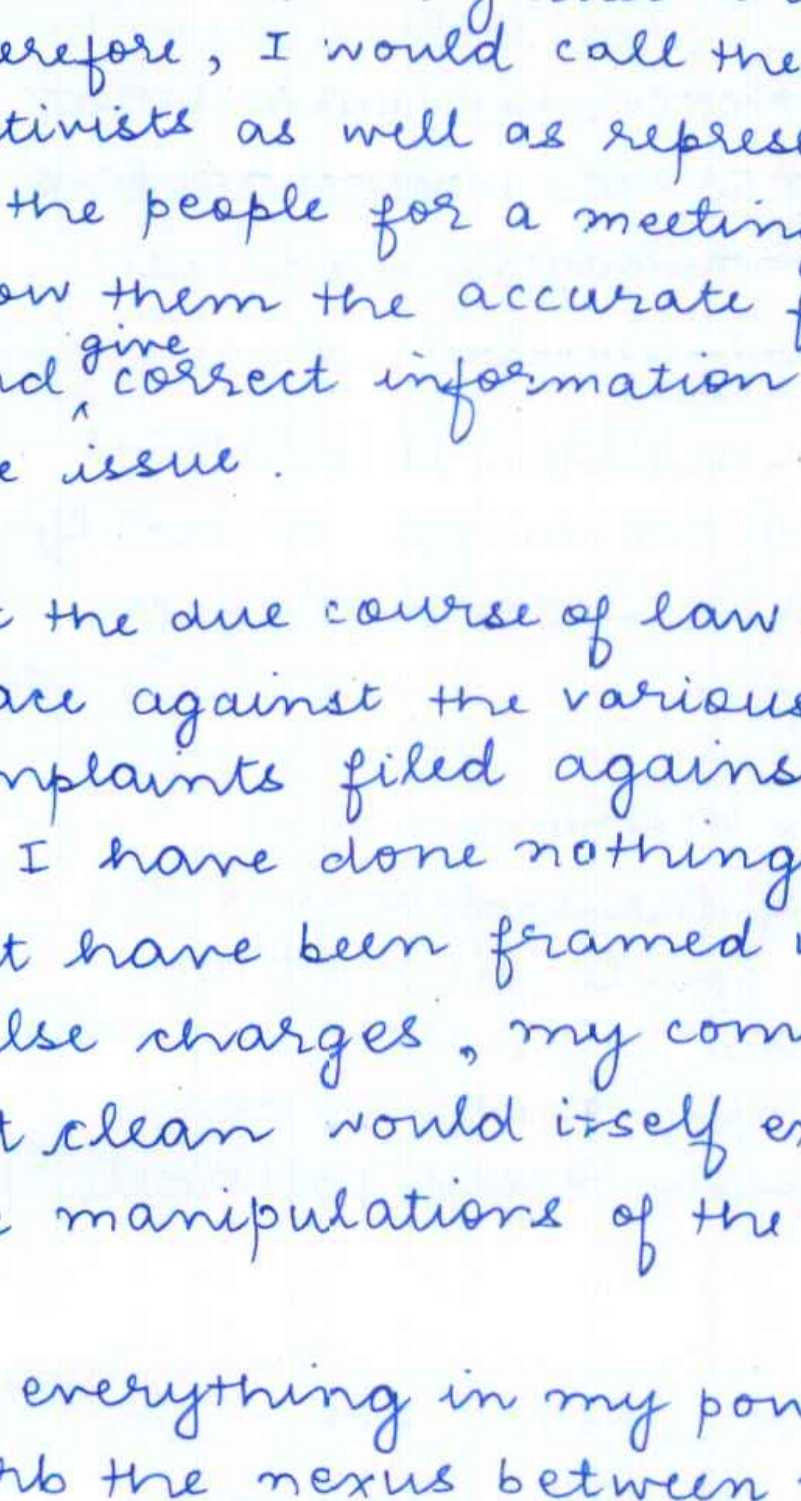 erefore, I would call the
tivists as well as represe
the people for a meeting
ow them the accurate f
nd give correct information
e issue.
t the due course of law
ace against the various
mplaints filed agains
I have done nothing
t have been framed
lse charges, my com
t clean would itself ex
e manipulations of the
everything in my pow
rb the nexus between